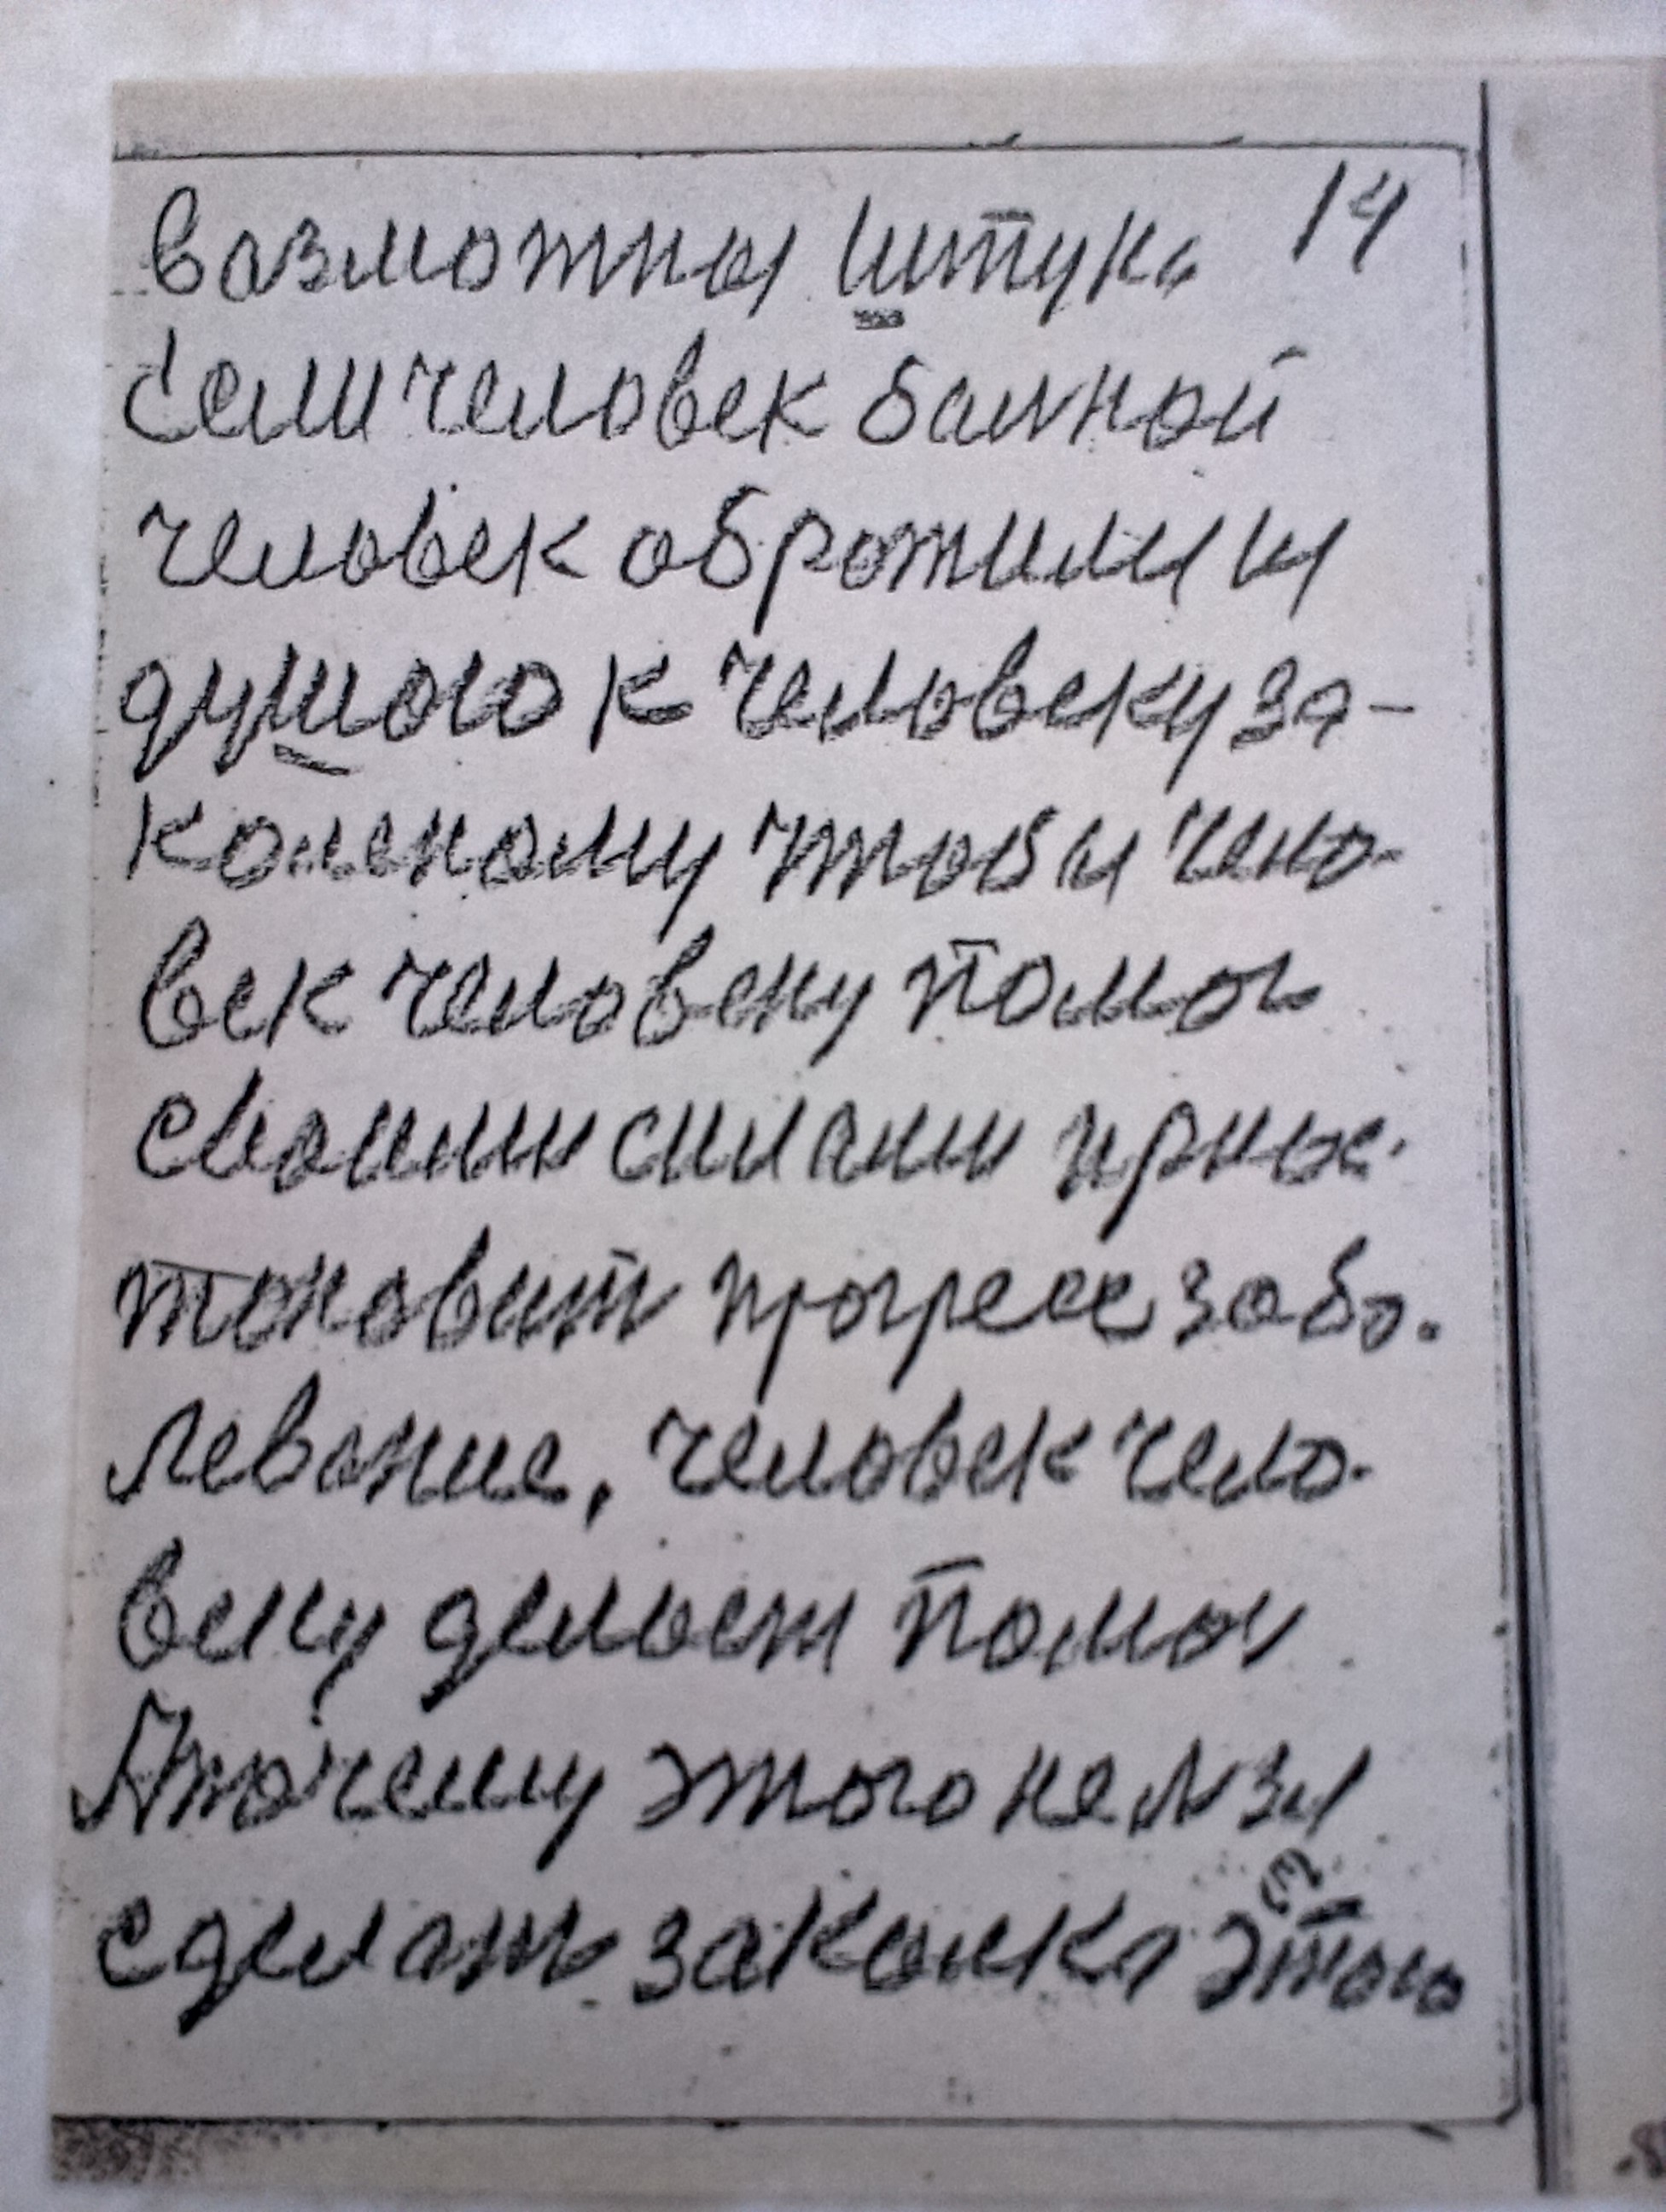 возможны штука 14
Если человек болной
человек обротилы и
душою к человеку за-
коленому чтобы чело-
век человеку помог
своими силами приос-
тоновить прогресс забо-
левоние, человек чело-
веку делоет помоч
А почему этого нельзы
сделать заколка этого